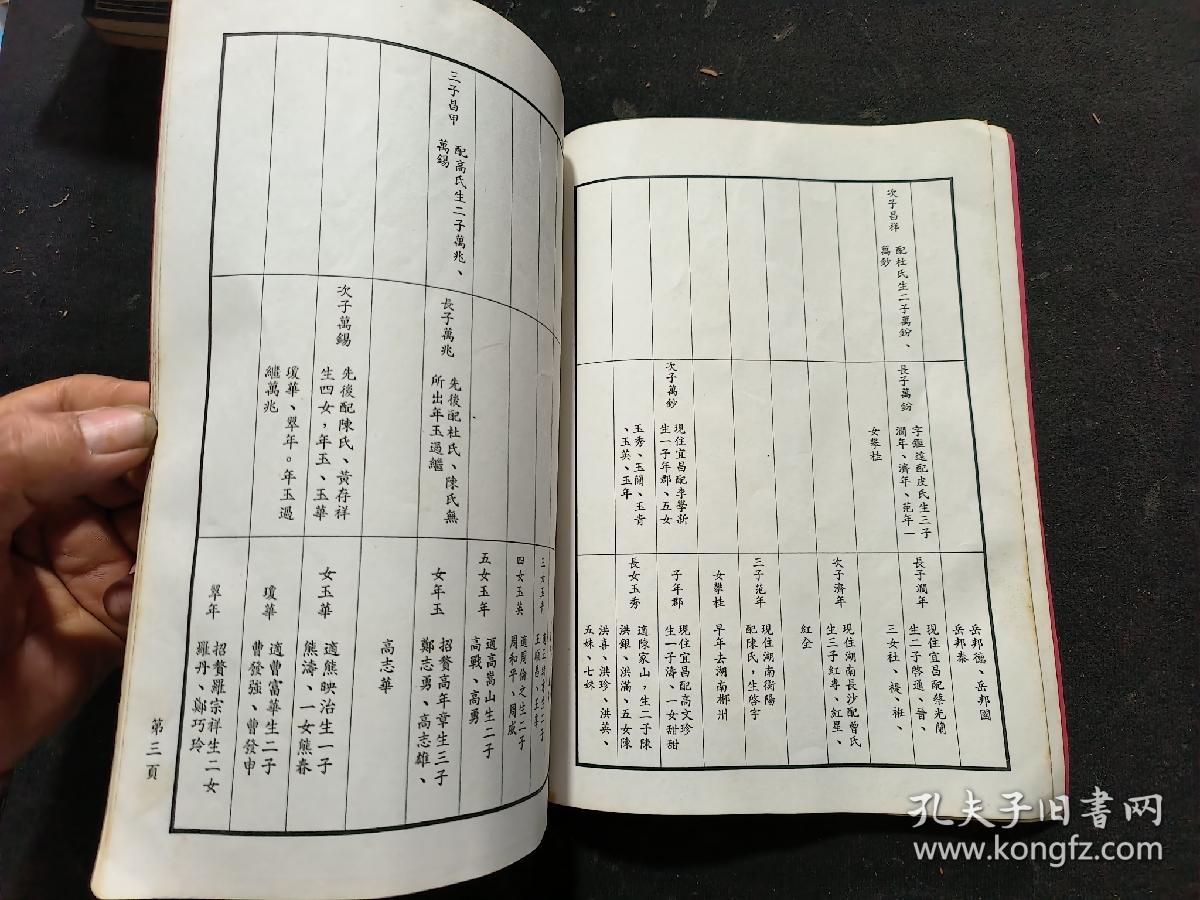 次子昌祥
配杜氏生二子萬鈖、
萬鈔
長子萬鈖
字鑑遠配皮氏生三子
潤年、濟年、范年一
女攀桂
次子萬鈔
現住宜昌配李學新
生一子年郡、五女
玉秀、玉蘭、玉青
、玉英、玉年
岳邦德、岳邦國
岳邦泰
長子潤年
現住宜昌配蔡光蘭
生二子啓進、普、
三女杜、
次子濟年
現住湖南長沙配曾氏
生三子紅專、紅星、
紅全
三子范年
現住湖南衡陽
配陳氏,生啓宇
女攀桂
早年去湖南郴州
子年郡
現住宜昌配高文珍
生一子濤、一女甜甜
長女玉秀
適陳家山,生二子陳
洪銀、洪滿、五女陳
洪喜、洪珍、洪英、
五妹、七妹
三子昌甲
配高氏生二子萬兆、
萬錫
長子萬兆
先後配杜氏、陳氏無
所出年玉過繼
次子萬錫
先後配陳氏、黃存祥
生四女,年玉、玉華
瓊華、翠年。年玉過
繼萬兆
四女玉英
適周倫文生二子
周和平、周成
五女玉年
適高嵩山生二子
高戰、高勇
女年玉
招贅高年章生三子
鄭志勇、高志雄、
高志華
女玉華
適熊映治生一子
熊濤、一女熊春
瓊華
適曹富華生二子
曹發強、曹發申
翠年
招贅羅宗祥生二女
羅丹、鄭巧玲
第三頁
孔夫子旧书网
www.kongfz.com